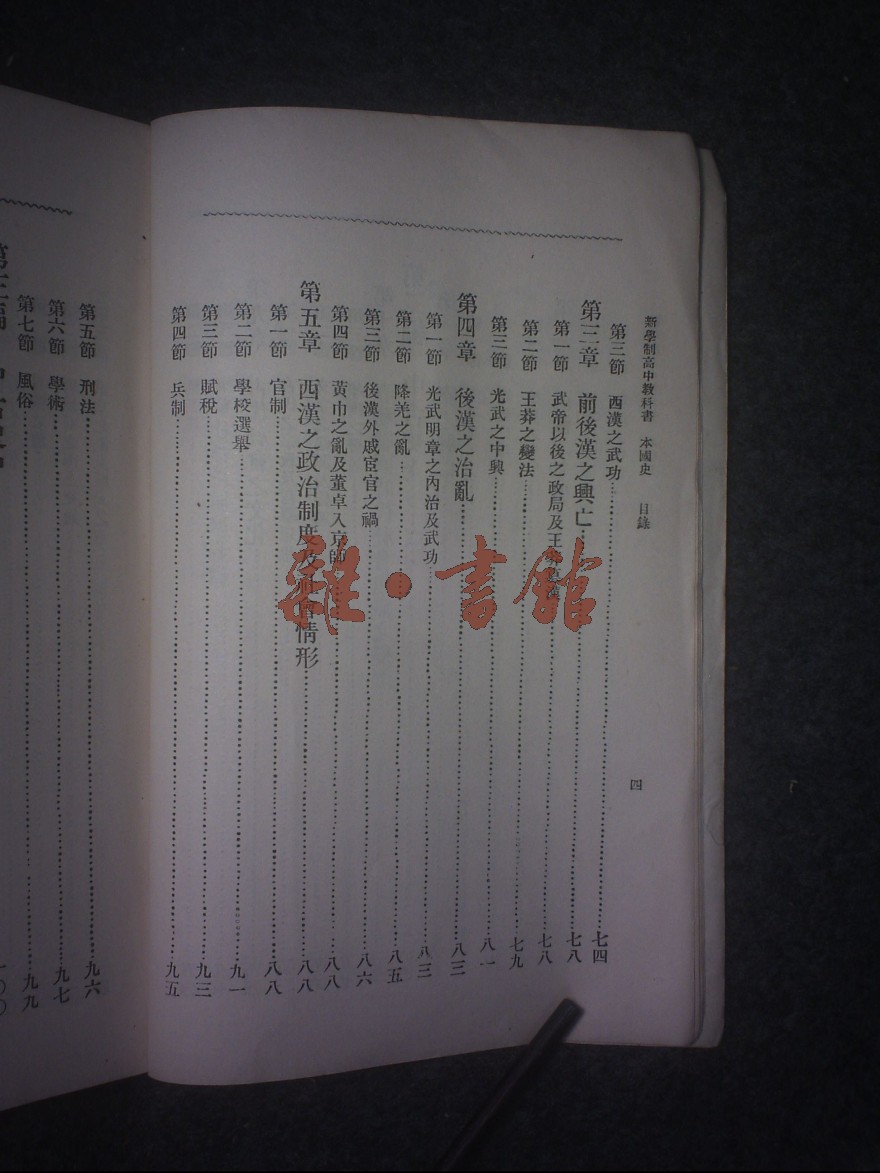 新學制高中教科書 本國史 目錄
四
第三節 西漢之武功……七四
第三章 前後漢之興亡……七八
第一節 武帝以後之政局及王……七八
第二節 王莽之變法……七九
第三節 光武之中興……八一
第四章 後漢之治亂……八三
第一節 光武明章之內治及武功……八三
第二節 降羌之亂……八五
第三節 後漢外戚宦官之禍……八六
第四節 黃巾之亂及董卓入京師……八八
第五章 西漢之政治制度及社會情形……八八
第一節 官制……八八
第二節 學校選舉……九一
第三節 賦稅……九三
第四節 兵制……九五
第五節 刑法……九六
第六節 學術……九七
第七節 風俗……九九
第三編
一〇〇
雜·書館